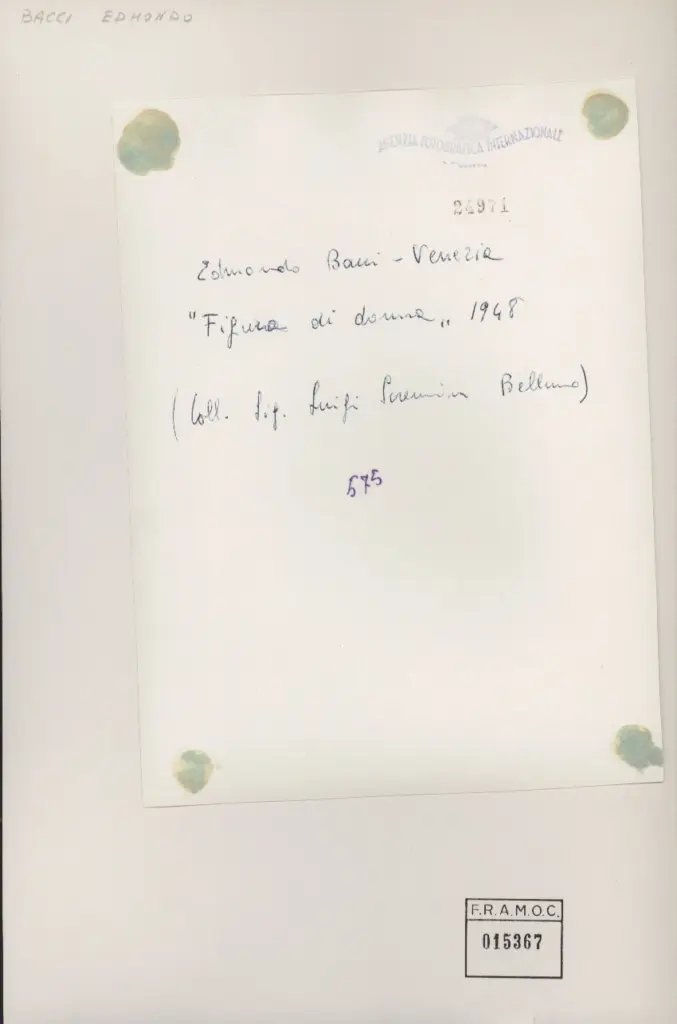 BACCI EDMONDO
AGENZIA FOTOGRAFICA INTERNAZIONALE
24971
Edmondo Bacci - Venezia
"Figura di donna„ 1948
(Coll. Sig. Luigi Belluno)
575
F.R.A.M.O.C.
015367